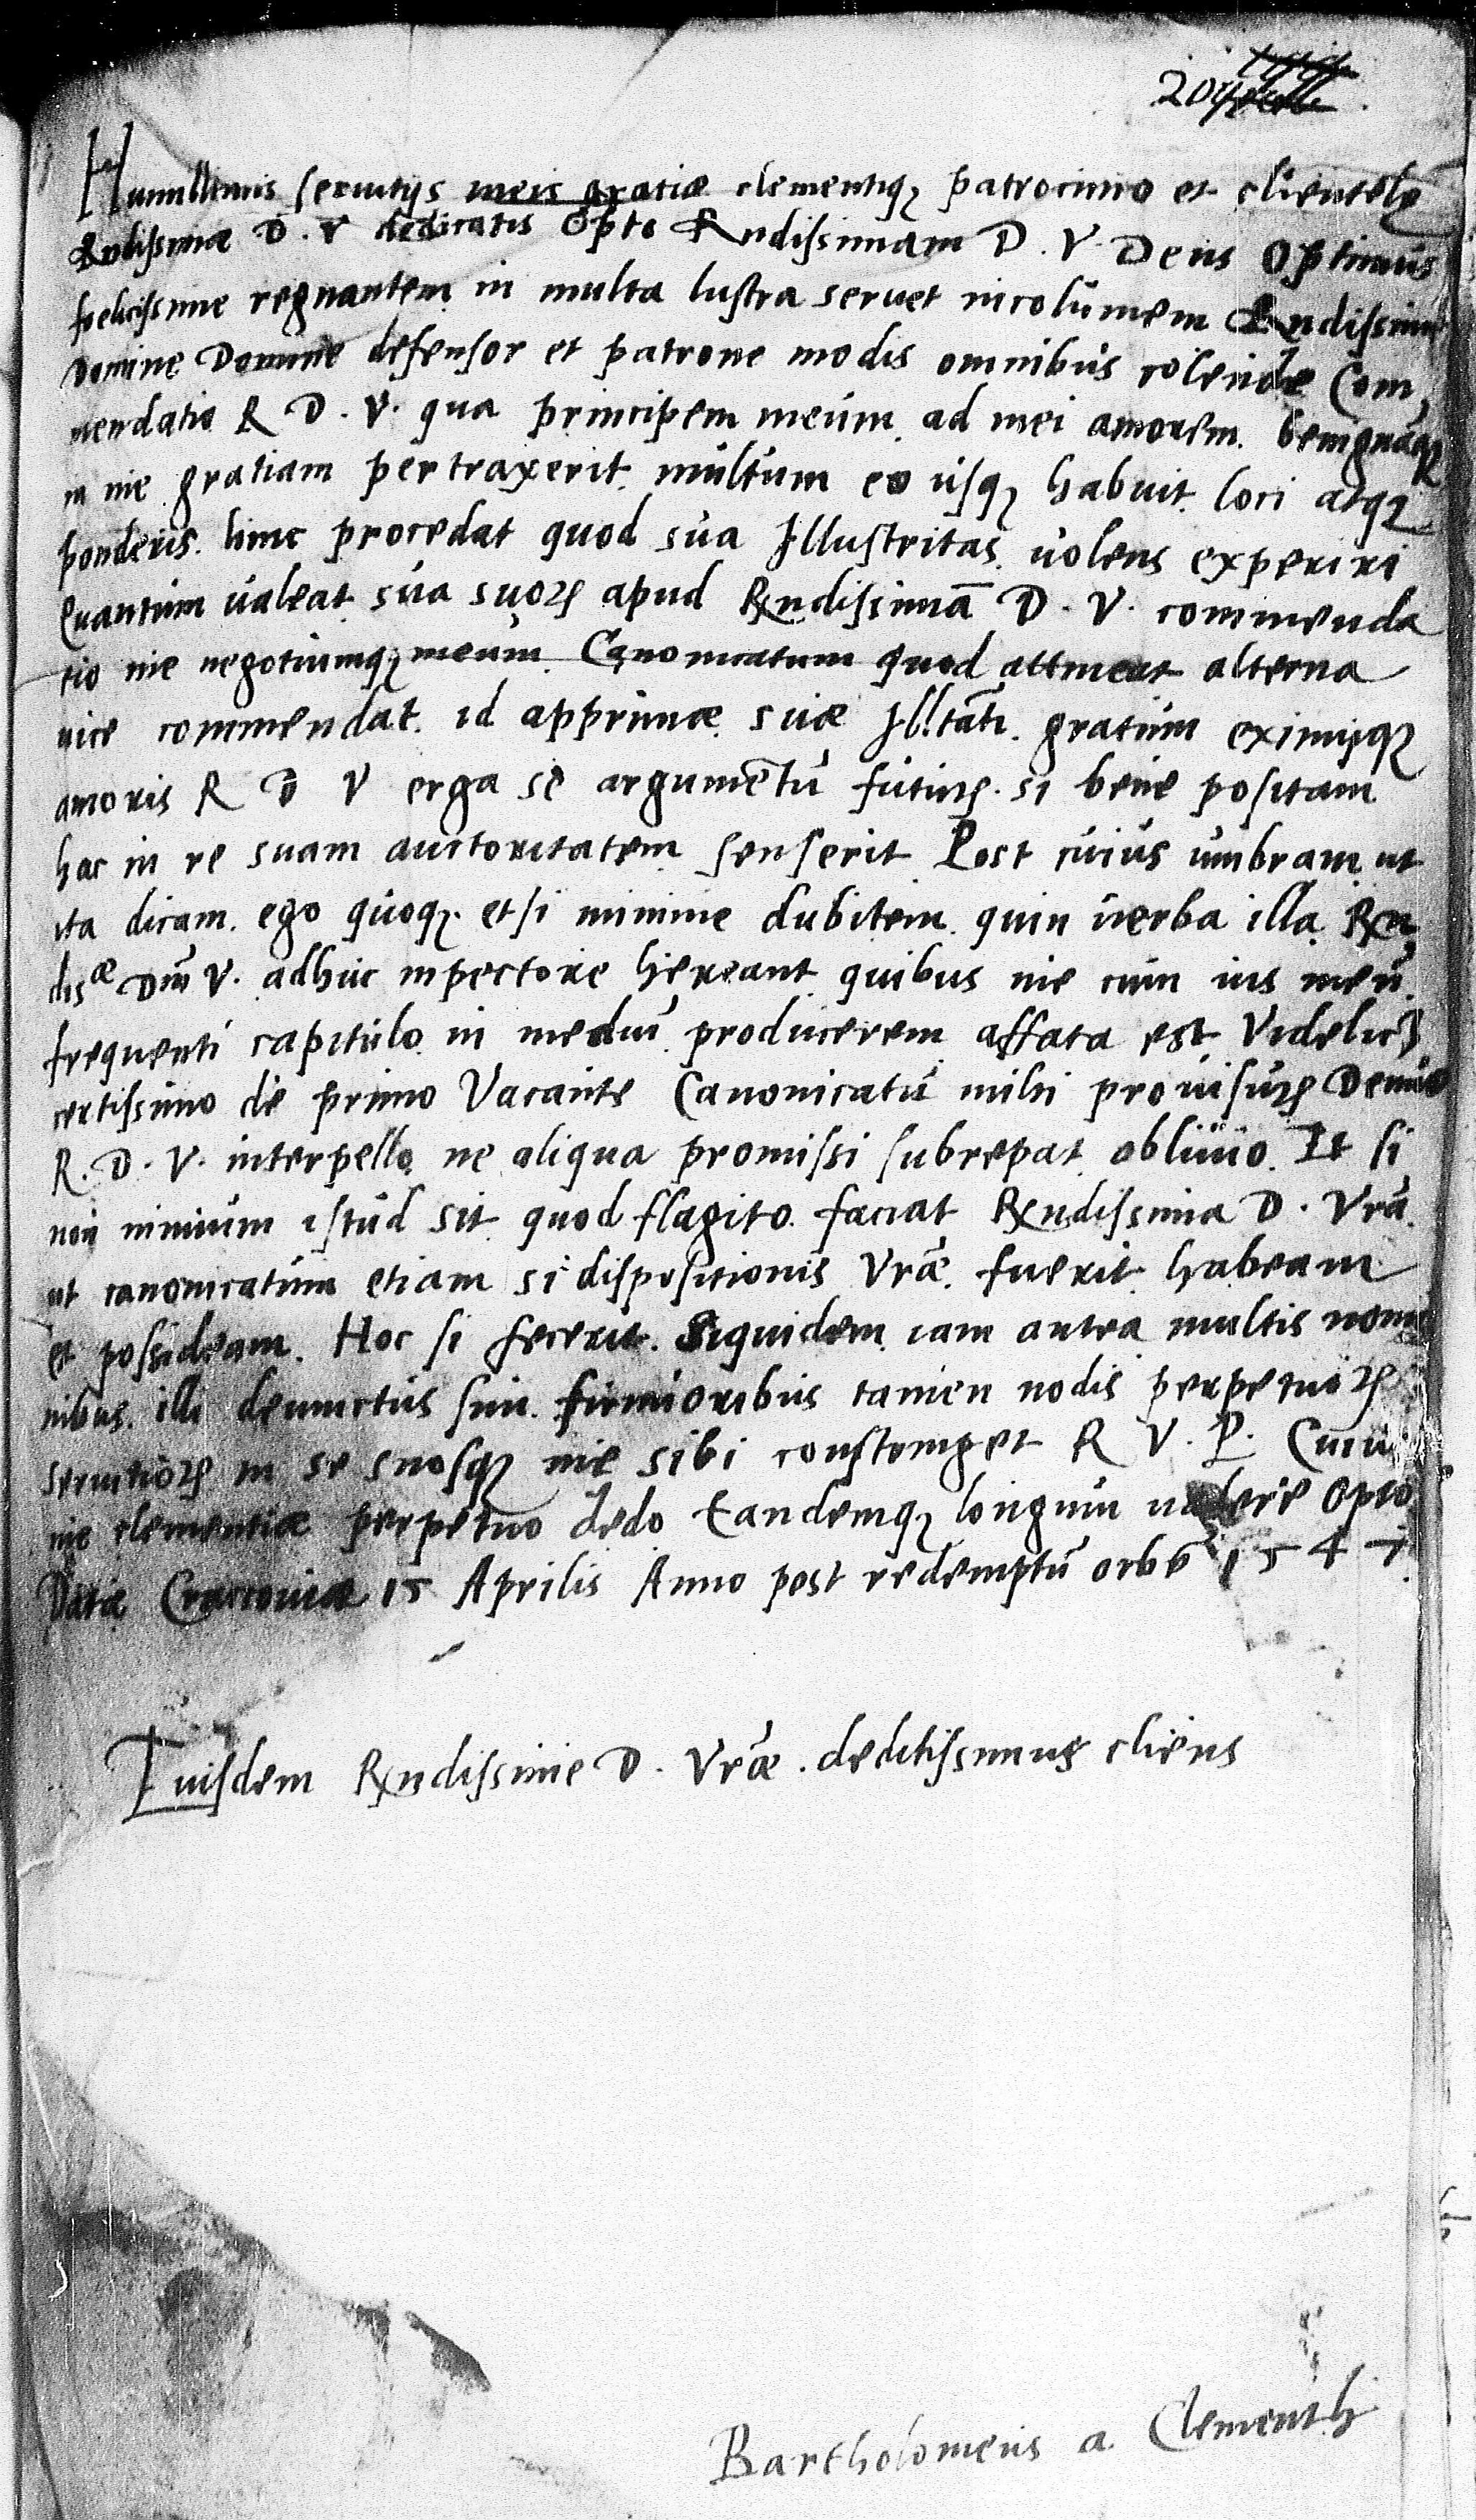 20
Humillimis seruitijs meis gratiæ clementiq; patrocinio et clientelę
Rndissimæ D. V dedicatis Opto Rndissimam D. V. Deus Optimus
foelicissime regnantem in multa lustra seruet incolumem Rndissime
Domine Domine defensor et patrone modis omnibus colende Com,
mendatio R D. V. qua principem meum ad mei amorem. benignāq;
in me gratiam pertraxerit. multum eo usq; habuit. loci atq;
ponderis. hinc procedat quod sua Illustritas. uolens experiri
Quantum ualeat sua suoꝝ apud Rndissimā D. V. commenda
tio me negotiumq; meum Canonicatum quod attineat alterna
uice commendat. id apprimæ suæ Illtāti. gratum eximijq;
amoris R D V erga se argumētū futuꝝ. si bene positam
hac in re suam auctoritatem senserit Post cuius umbram ut
ita dicam. ego quoq;. etsi minime dubitem quin uerba illa. Rn,
disæ Dnī V. adhuc in pectore hereant quibus me cum ius meū
frequenti capitulo in mediū producerem affata est Videlicꝫ
certissimo de primo Vacante Canonicatū mihi prouisuꝝ Denuo
R. D. V. interpello ne aliqua promissi subrepat obliuio. Et si
non nimium istud sit quod flagito. faciat Rndissima D. Vrā.
ut canonicatum etiam si dispositionis Vrǣ. fuerit habeam
et possideam. Hoc si fecerit. Siquidem iam antea multis nomi
nibus. illi deuinctus sim. firmioribus tamen nodis perpetuoꝝ
seruitioꝝ in se suosq; me sibi constringet R V. P. Cuiu
me clementiæ perpetuo dedo tandemq; longum ualere opto
Datæ Cracouiæ 15 Aprilis Anno post redemptū orbē 1547
Euisdem Rndissime D. Vrǣ. deditissimus cliens
Bartholomeus a Clementh